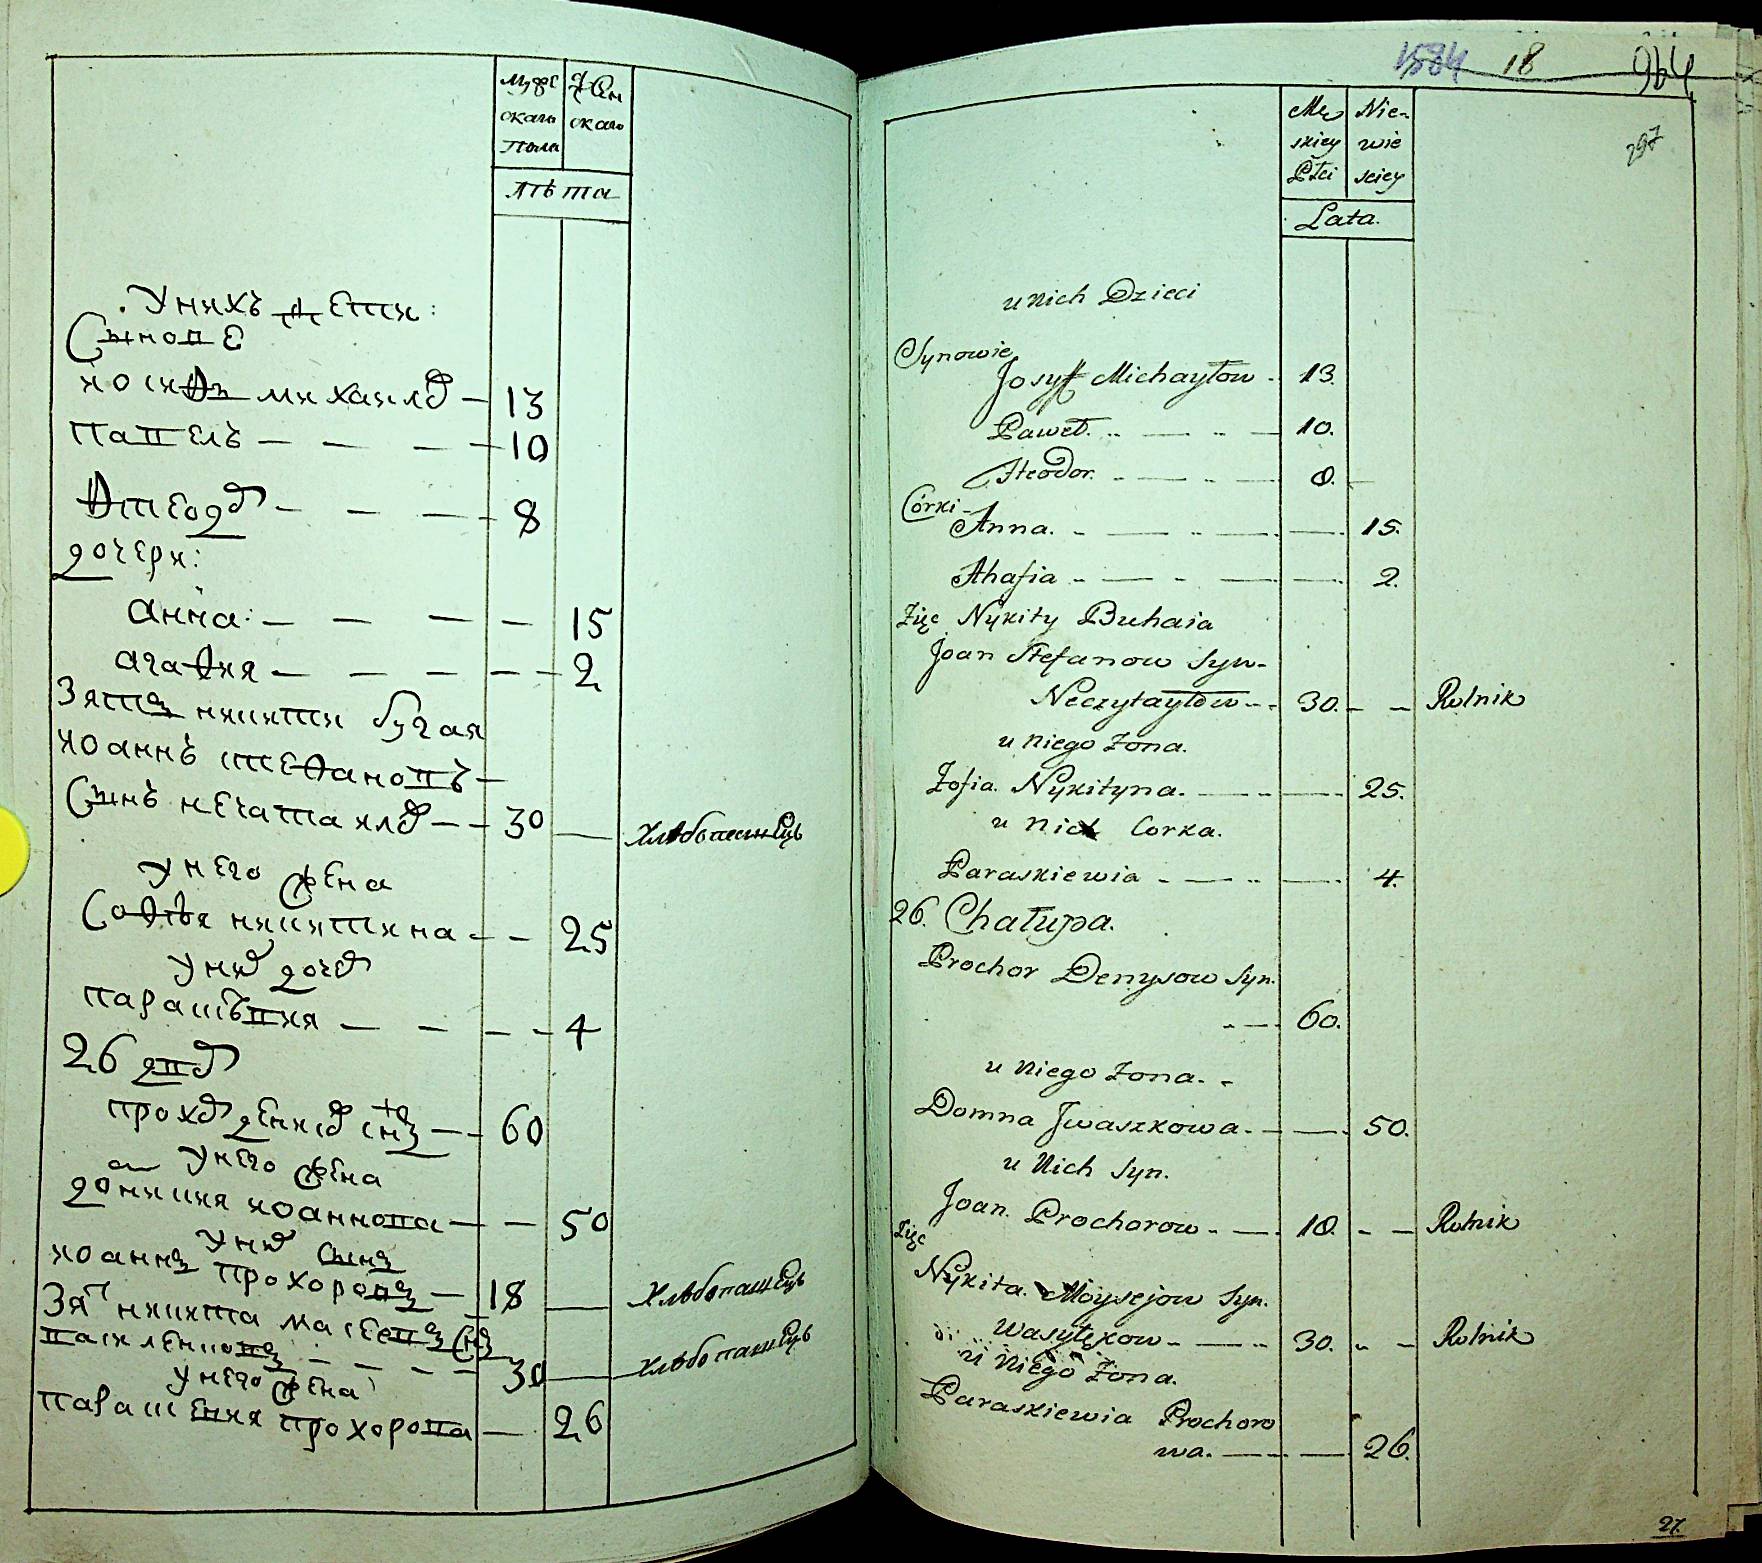 мужескаго пола
женскаго
лѣта
У нихъ дети:
Сынове
иосифъ михаилов — 13
павелъ — — — 10
Ѳтеодор — — — 8
дочери:
анна: — — — — 15
агафия — — — — 2
Зять никити бугая
иоаннъ стефановъ —
Сынъ нечатаилов — — 30 — хлѣбопашецъ
у него жена
Софѣя никитина — — 25
у них дочер
парасъвия — — — — 4
26 двор
прохор денисов снъ — — 60
у него жена
домникия иоаннова — — 50
у них сынъ
иоаннъ прохоровъ — 18 — хлѣбопашецъ
Зят никита масеевъ снъ
василенковъ — — — — 30 — хлѣбопашецъ
у него жена
парасевия прохорова — 26
1584 18 964
297
Męskiey Płci
Niewieściey
Lata.
u nich Dzieci
Synowie
Josyff Michayłow - 13.
Paweł. — 10.
Fteodor. — 8.
Córki -
Anna. — 15.
Ahafia — 2.
Zięc Nykity Buhaia
Joan Stefanow Syn-
Neczytayłow - - 30. - — Rolnik
u niego Zona.
Zofia Nykityna. — 25.
u nich Corka.
Paraskiewia - — 4.
26. Chałupa.
Prochor Denysow Syn.
- — 60.
u niego Zona. -
Domna Jwaszkowa. - — 50.
u Nich Syn.
Joan Prochorow - — 18. - — Rolnik
Zięc
Nykita Moysejow Syn.
Wasylękow - — 30. - — Rolnik
u Niego Zona.
Paraskiewia Prochoro
wa. — 26.
27.